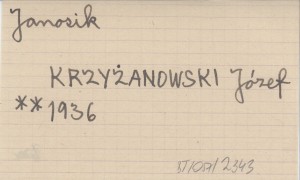 Janosik
KRZYŻANOWSKI Józef
**1936
2343